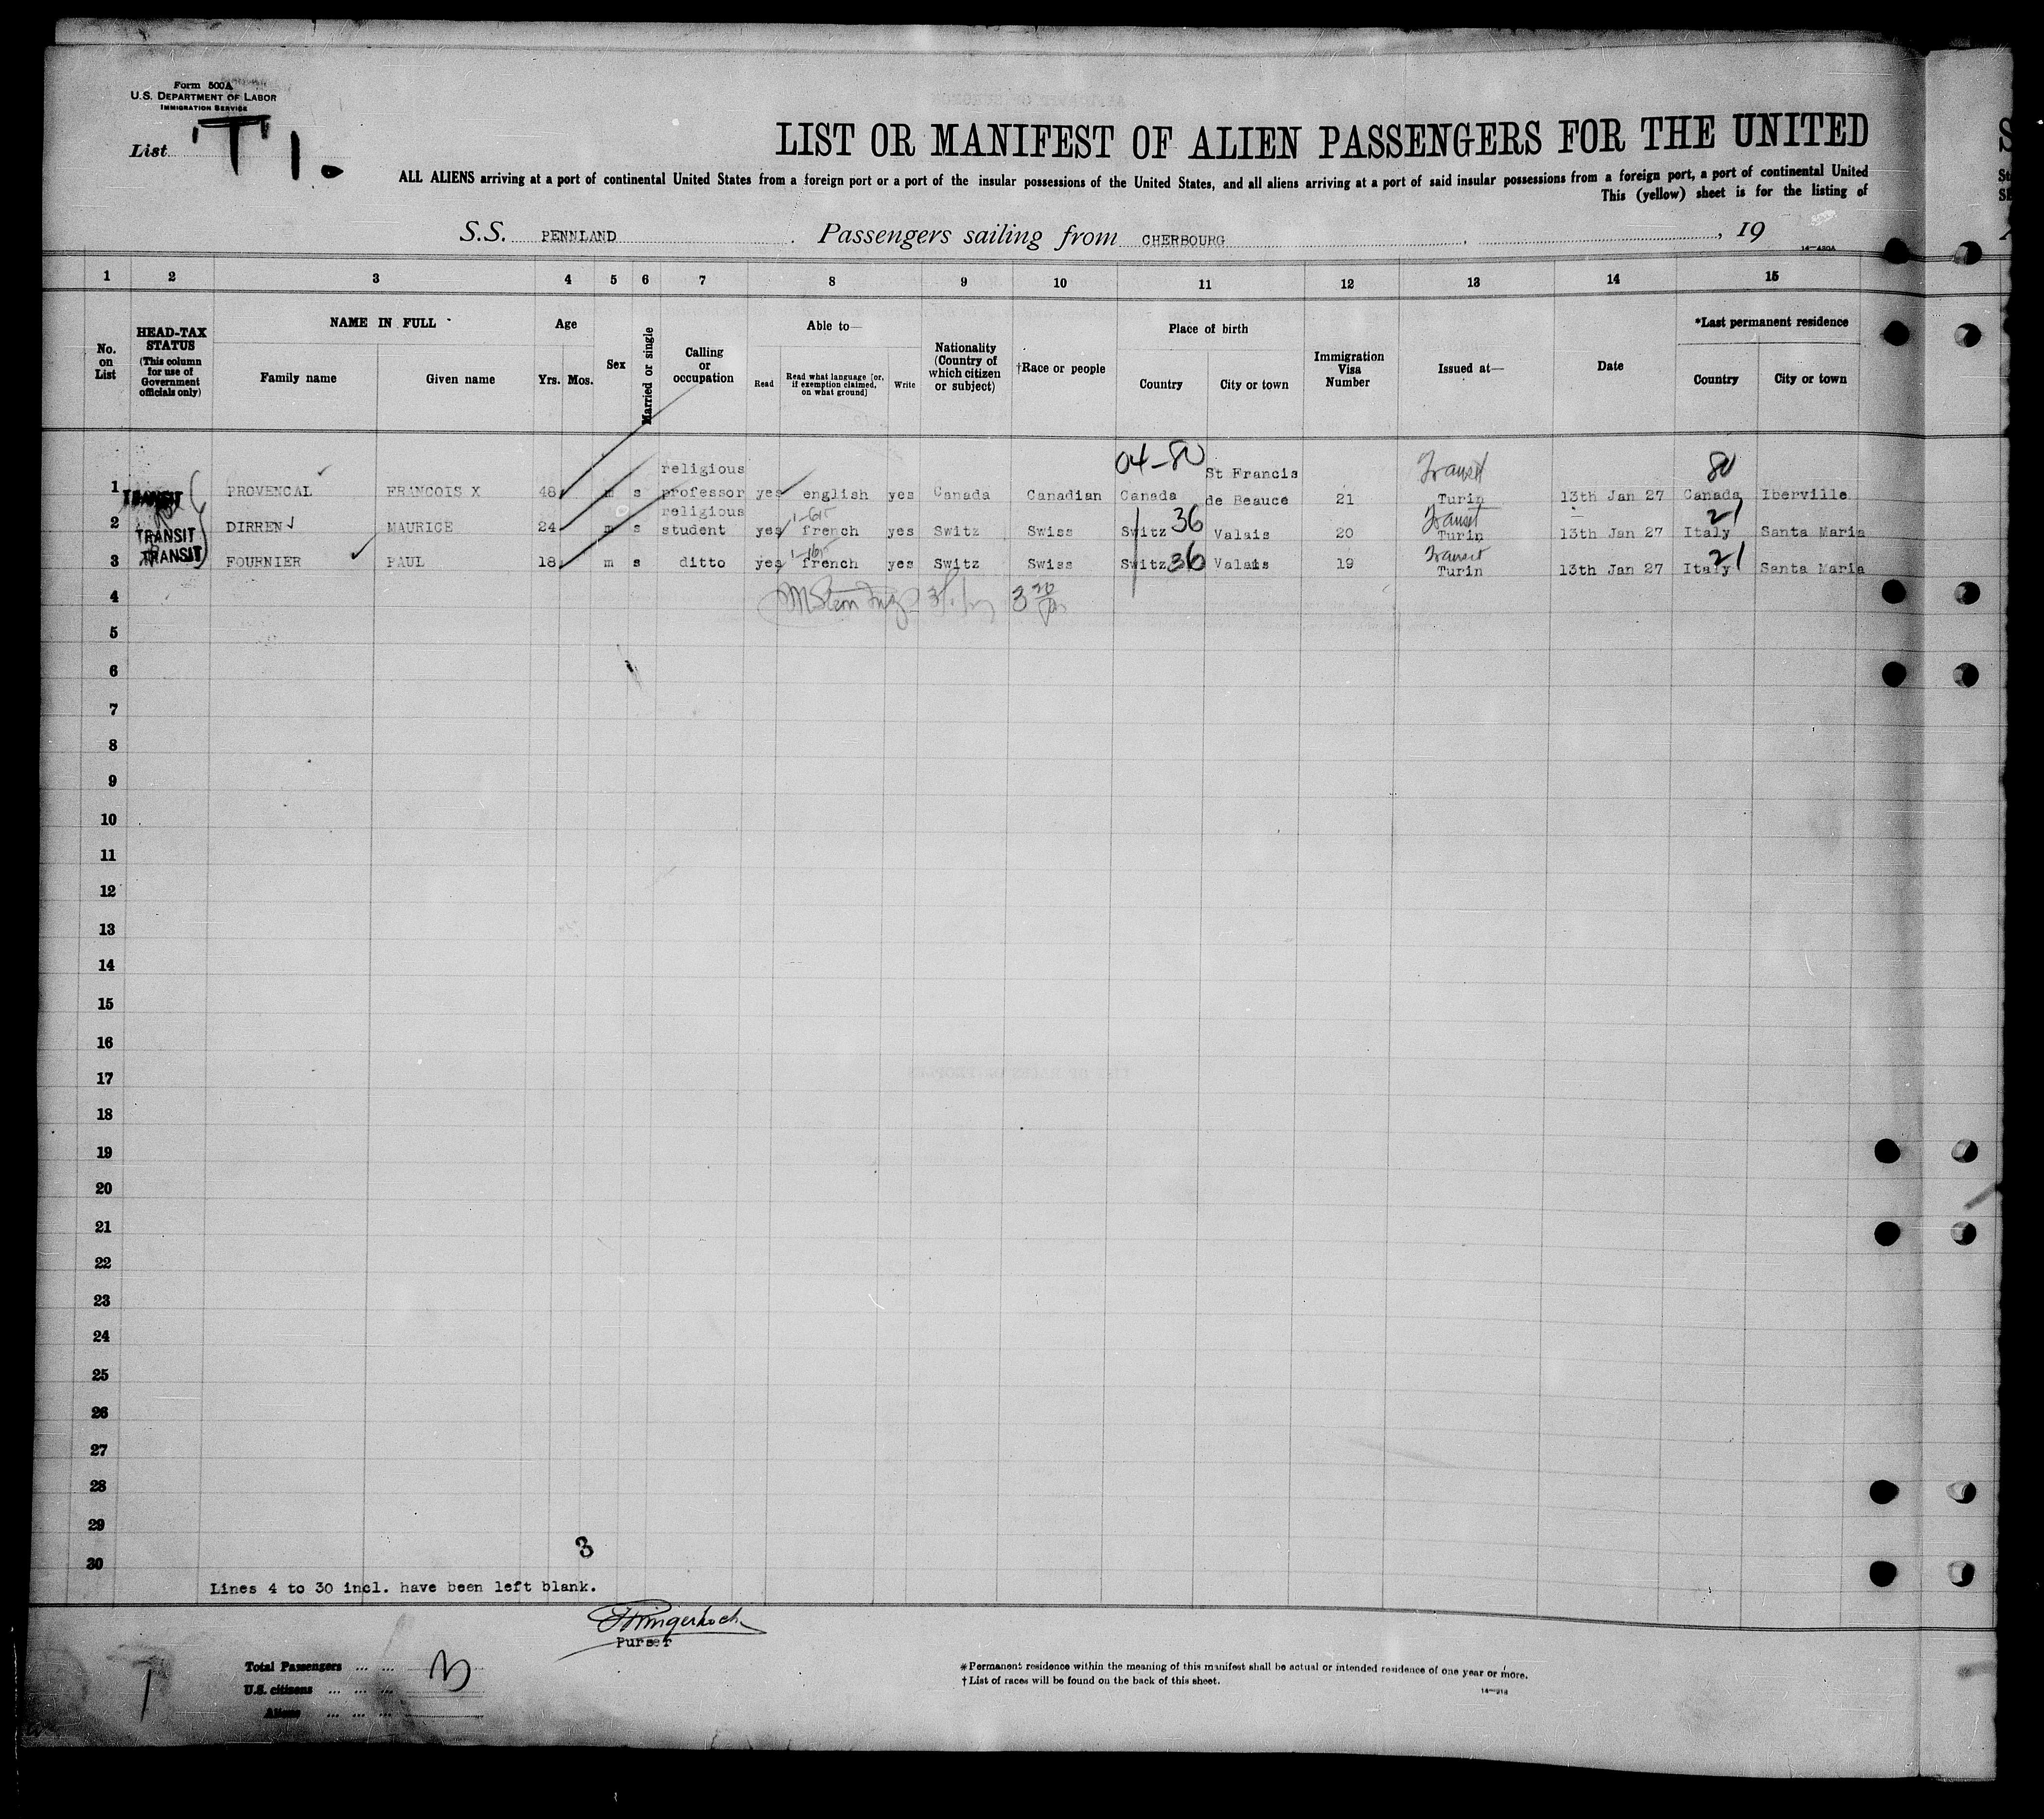 Form 500A
U.S. DEPARTMENT OF LABOR
IMMIGRATION SERVICE
List "T" 1.
LIST OR MANIFEST OF ALIEN PASSENGERS FOR THE UNITED
ALL ALIENS arriving at a port of continental United States from a foreign port or a port of the insular possessions of the United States, and all aliens arriving at a port of said insular possessions from a foreign port, a port of continental United
This (yellow) sheet is for the listing of
S.S. PENNLAND Passengers sailing from CHERBOURG , 19
14-430A
1 2 3 4 5 6 7 8 9 10 11 12 13 14 15
No. on List
HEAD-TAX STATUS (This column for use of Government officials only)
NAME IN FULL
Family name Given name
Age
Yrs. Mos.
Sex
Married or single
Calling or occupation
Able to—
Read
Read what language [or, if exemption claimed, on what ground]
Write
Nationality (Country of which citizen or subject)
†Race or people
Place of birth
Country City or town
Immigration Visa Number
Issued at—
Date
*Last permanent residence
Country City or town
04-80 Transit 80
religious St Francis
1 TRANSIT PROVENCAL FRANCOIS X 48 m s professor yes english yes Canada Canadian Canada de Beauce 21 Turin 13th Jan 27 Canada Iberville
religious 36 Transit 21
2 TRANSIT DIRREN MAURICE 24 m s student yes french yes Switz Swiss Switz Valais 20 Turin 13th Jan 27 Italy Santa Maria
36 Transit 21
3 TRANSIT FOURNIER PAUL 18 m s ditto yes french yes Switz Swiss Switz Valais 19 Turin 13th Jan 27 Italy Santa Maria
4
5
6
7
8
9
10
11
12
13
14
15
16
17
18
19
20
21
22
23
24
25
26
27
28
29
30
3
Lines 4 to 30 incl. have been left blank.
Purser
Total Passengers ... ... 3
U.S. citizens ... ... ...
Aliens ... ... ...
*Permanent residence within the meaning of this manifest shall be actual or intended residence of one year or more.
†List of races will be found on the back of this sheet.